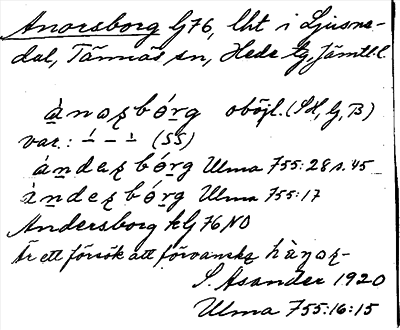 Anorsborg G76, lht i Ljusne-
dal, Tännäs sn, Hede tg, Jämtl. l.
ànoʂbórg oböjl. (SH, G, B)
var.: – – – (SS)
ándeʂbórg Ulma 755:28 s. 45
àndeʂbórg Ulma 755:17
Andersborg kG76NO
Är ett försök att förvanska hànoʂ-
S. Asander 1920
Ulma 755:16:15